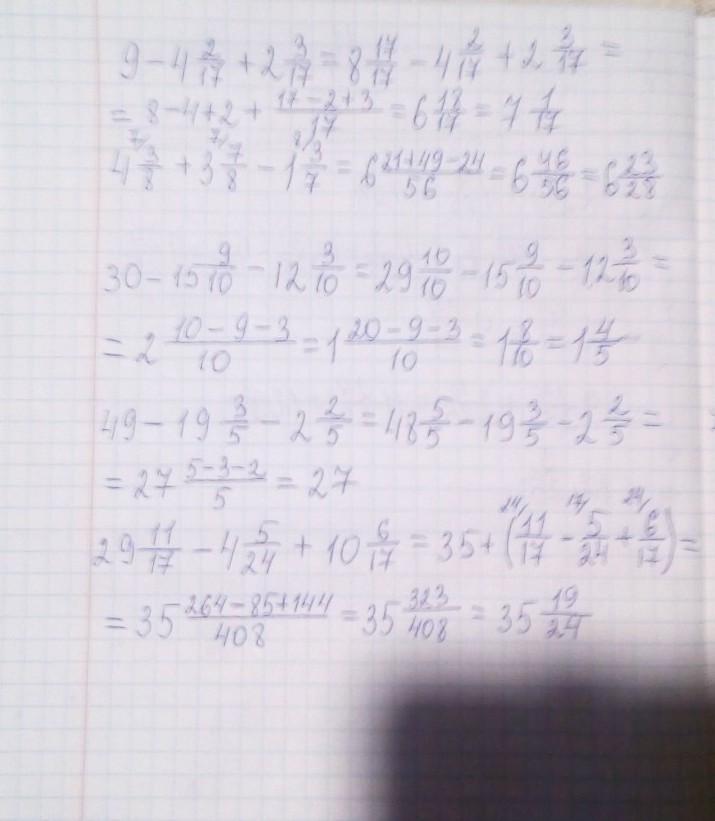 9 - 4 2/17 + 2 3/17 = 8 17/17 - 4 2/17 + 2 3/17 =
= 8 - 4 + 2 + (17 - 2 + 3)/17 = 6 18/17 = 7 1/17
4 3/8 (7/) + 3 7/8 (7/) - 1 3/7 (8/) = 6 (21 + 49 - 24)/56 = 6 46/56 = 6 23/28
30 - 15 9/10 - 12 3/10 = 29 10/10 - 15 9/10 - 12 3/10 =
= 2 (10 - 9 - 3)/10 = 1 (20 - 9 - 3)/10 = 1 8/10 = 1 4/5
49 - 19 3/5 - 2 2/5 = 48 5/5 - 19 3/5 - 2 2/5 =
= 27 (5 - 3 - 2)/5 = 27
29 11/17 - 4 5/24 + 10 6/17 = 35 + (11/17 (24/) - 5/24 (17/) + 6/17 (24/)) =
= 35 (264 - 85 + 144)/408 = 35 323/408 = 35 19/24